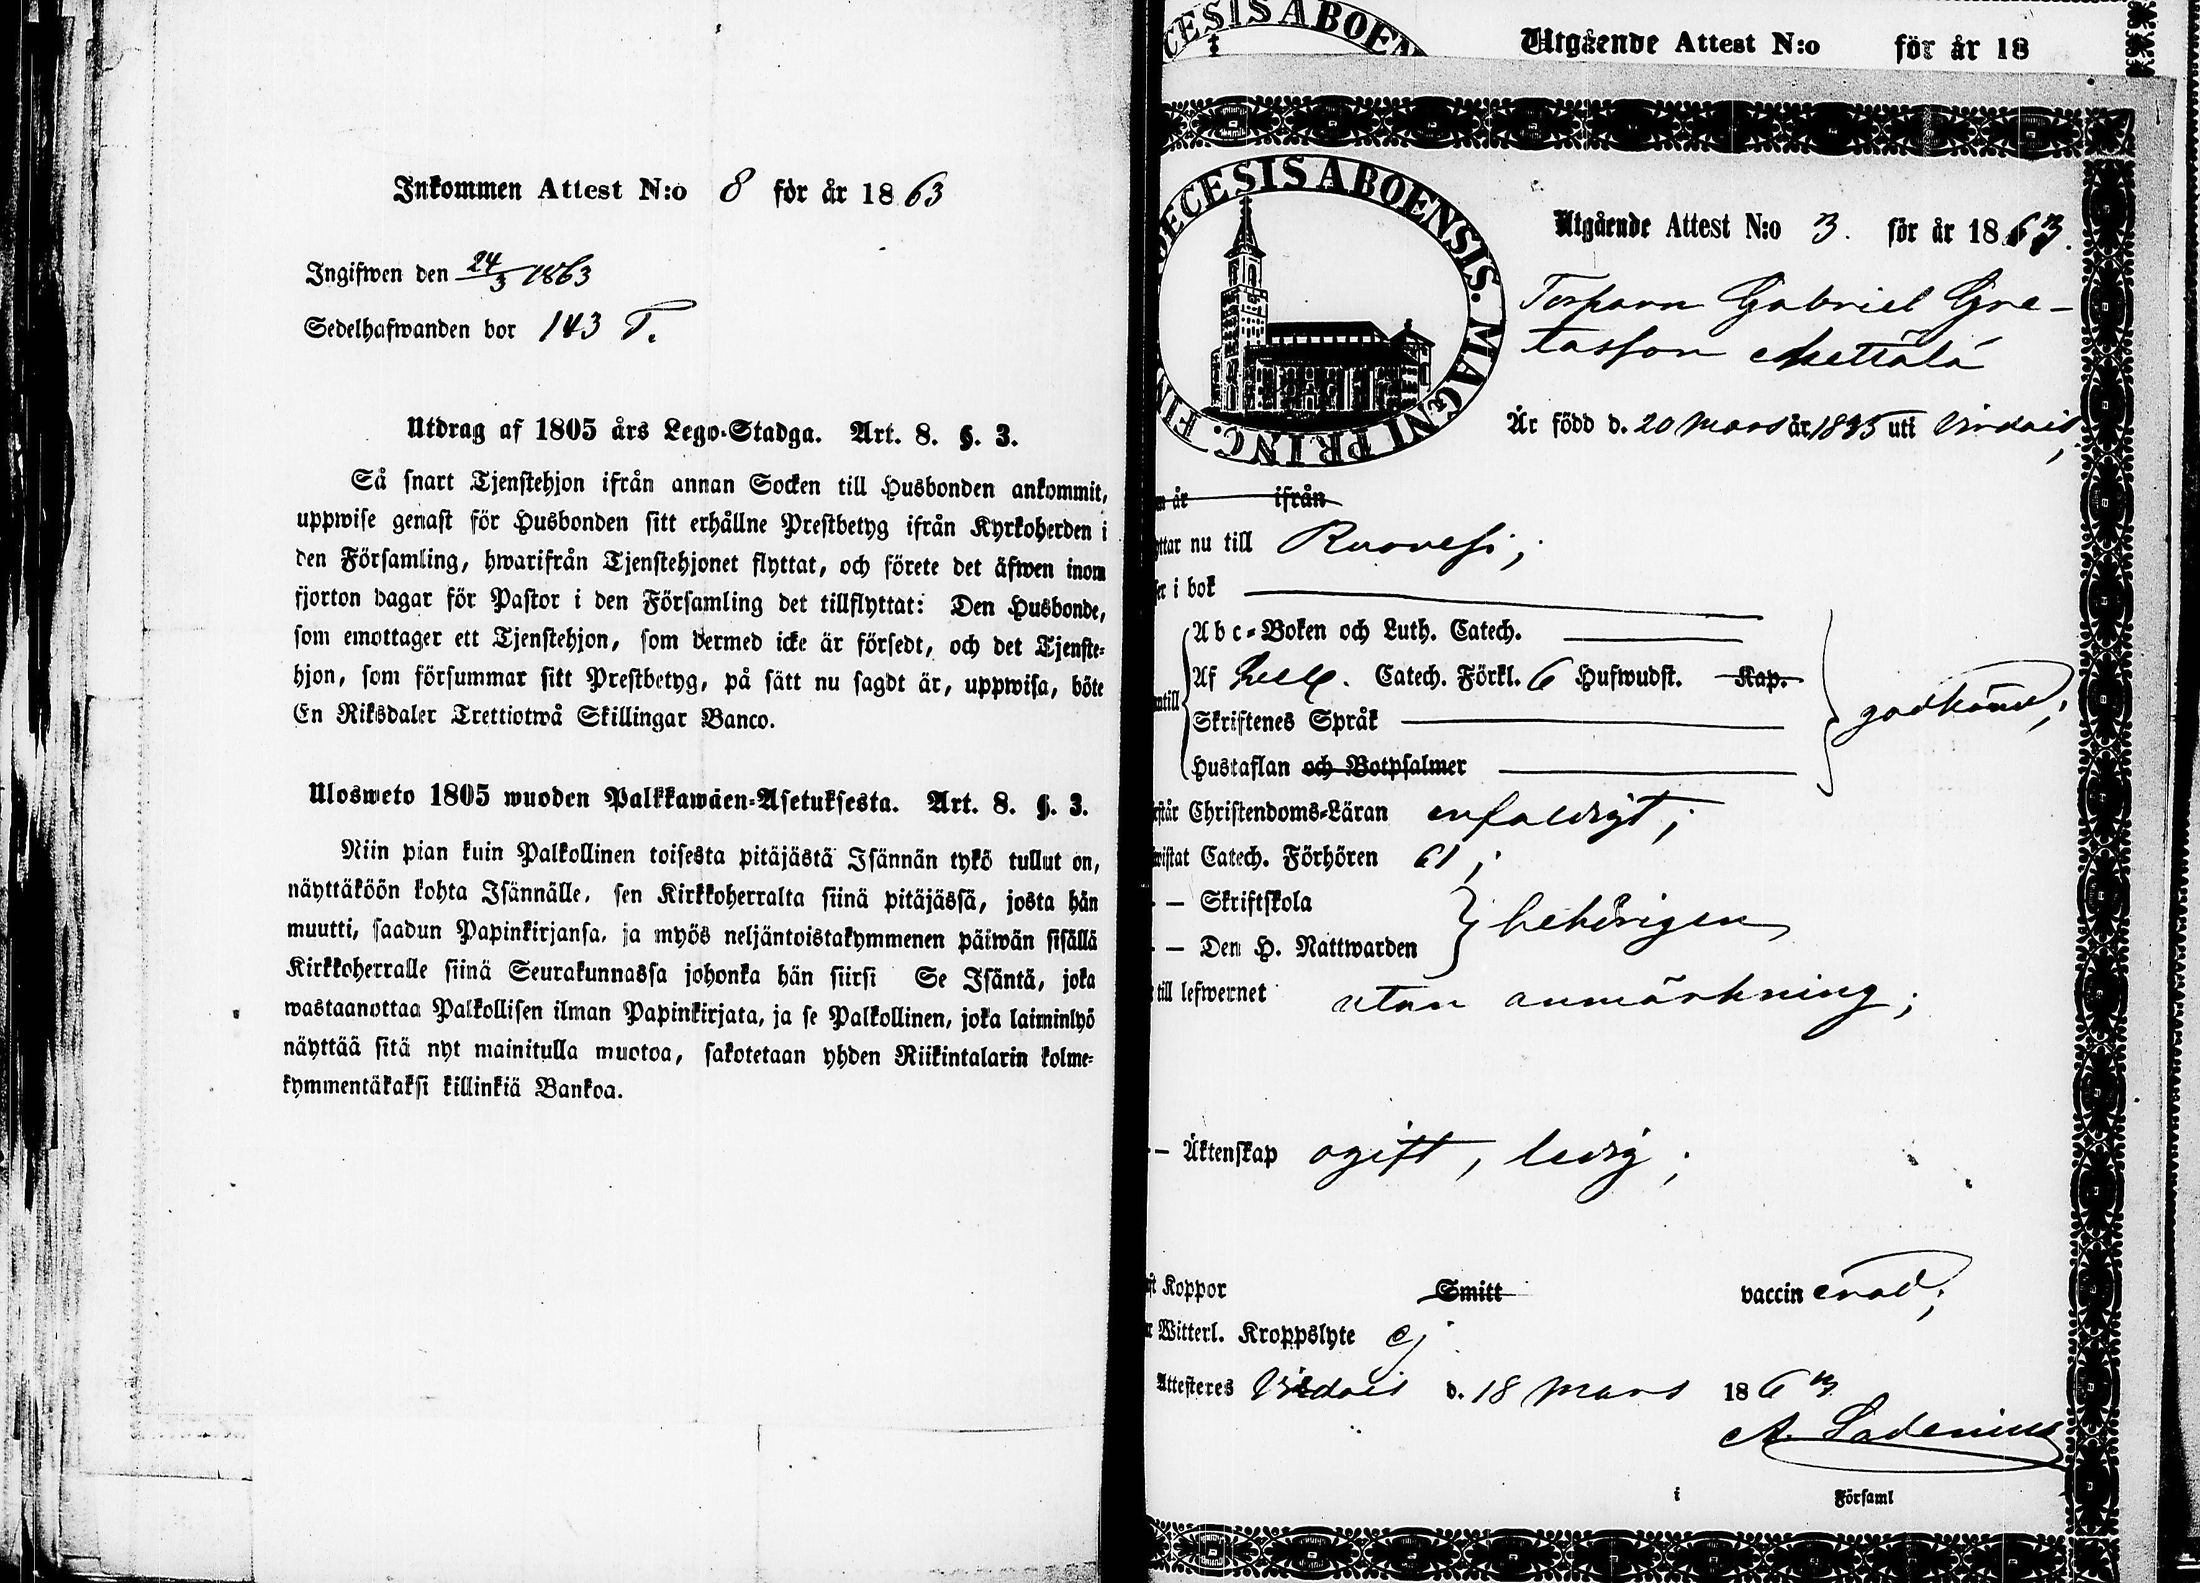 Inkommen Attest N:o 8 för år 1863
Ingifwen den 24/3 1863
Sedelhafwanden bor 143 T.
Utdrag af 1805 års Lego-Stadga. Art. 8. §. 3.
Så snart Tjenstehjon ifrån annan Socken till Husbonden ankommit,
uppwise genast för Husbonden sitt erhållne Prestbetyg ifrån Kyrkoherden i
den Församling, hwarifrån Tjenstehjonet flyttat, och förete det äfwen inom
fjorton dagar för Pastor i den Församling det tillflyttat: Den Husbonde,
som emottager ett Tjenstehjon, som dermed icke är försedt, och det Tjenste-
hjon, som försummar sitt Prestbetyg, på sätt nu sagdt är, uppwisa, böte
En Riksdaler Trettiotwå Skillingar Banco.
Ulosweto 1805 wuoden Palkkawäen-Asetuksesta. Art. 8. §. 3.
Niin pian kuin Palkollinen toisesta pitäjästä Isännän tykö tullut on,
näyttäköön kohta Isännälle, sen Kirkkoherralta siinä pitäjässä, josta hän
muutti, saadun Papinkirjansa, ja myös neljäntoistakymmenen päiwän sisällä
Kirkkoherralle siinä Seurakunnassa johonka hän siirsi Se Isäntä, joka
wastaanottaa Palkollisen ilman Papinkirjata, ja se Palkollinen, joka laiminlyö
näyttää sitä nyt mainitulla muotoa, sakotetaan yhden Riikintalarin kolme-
kymmentäkaksi killinkiä Bankoa.
ECESIS ABOEN
Utgående Attest N:o för år 18
DECESIS ABOENSIS. MAGNI PRINC. FIN
Utgående Attest N:o 3. för år 1863.
Gabriel Gre-
tasson
Är född d. 20 Mars år 1835 uti Virdois,
år ifrån
nu till Ruovesi;
i bok
Abc-Boken och Luth. Catech.
Af Catech. Förkl. 6 Hufwudst. Kap.
Skriftenes Språk
godkänd;
Hustaflan och Botpsalmer
Christendoms-Läran enfaldigt;
Catech. Förhören 61;
— Skriftskola
behörigen
— Den H. Nattwarden
till lefwernet utan anmärkning;
— Äktenskap ogift, ledig;
Koppor Smitt vaccinerad;
Witterl. Kroppslyte ej
Attesteres Virdois d. 18 Mars 1863
A. Ladenius
i Församl